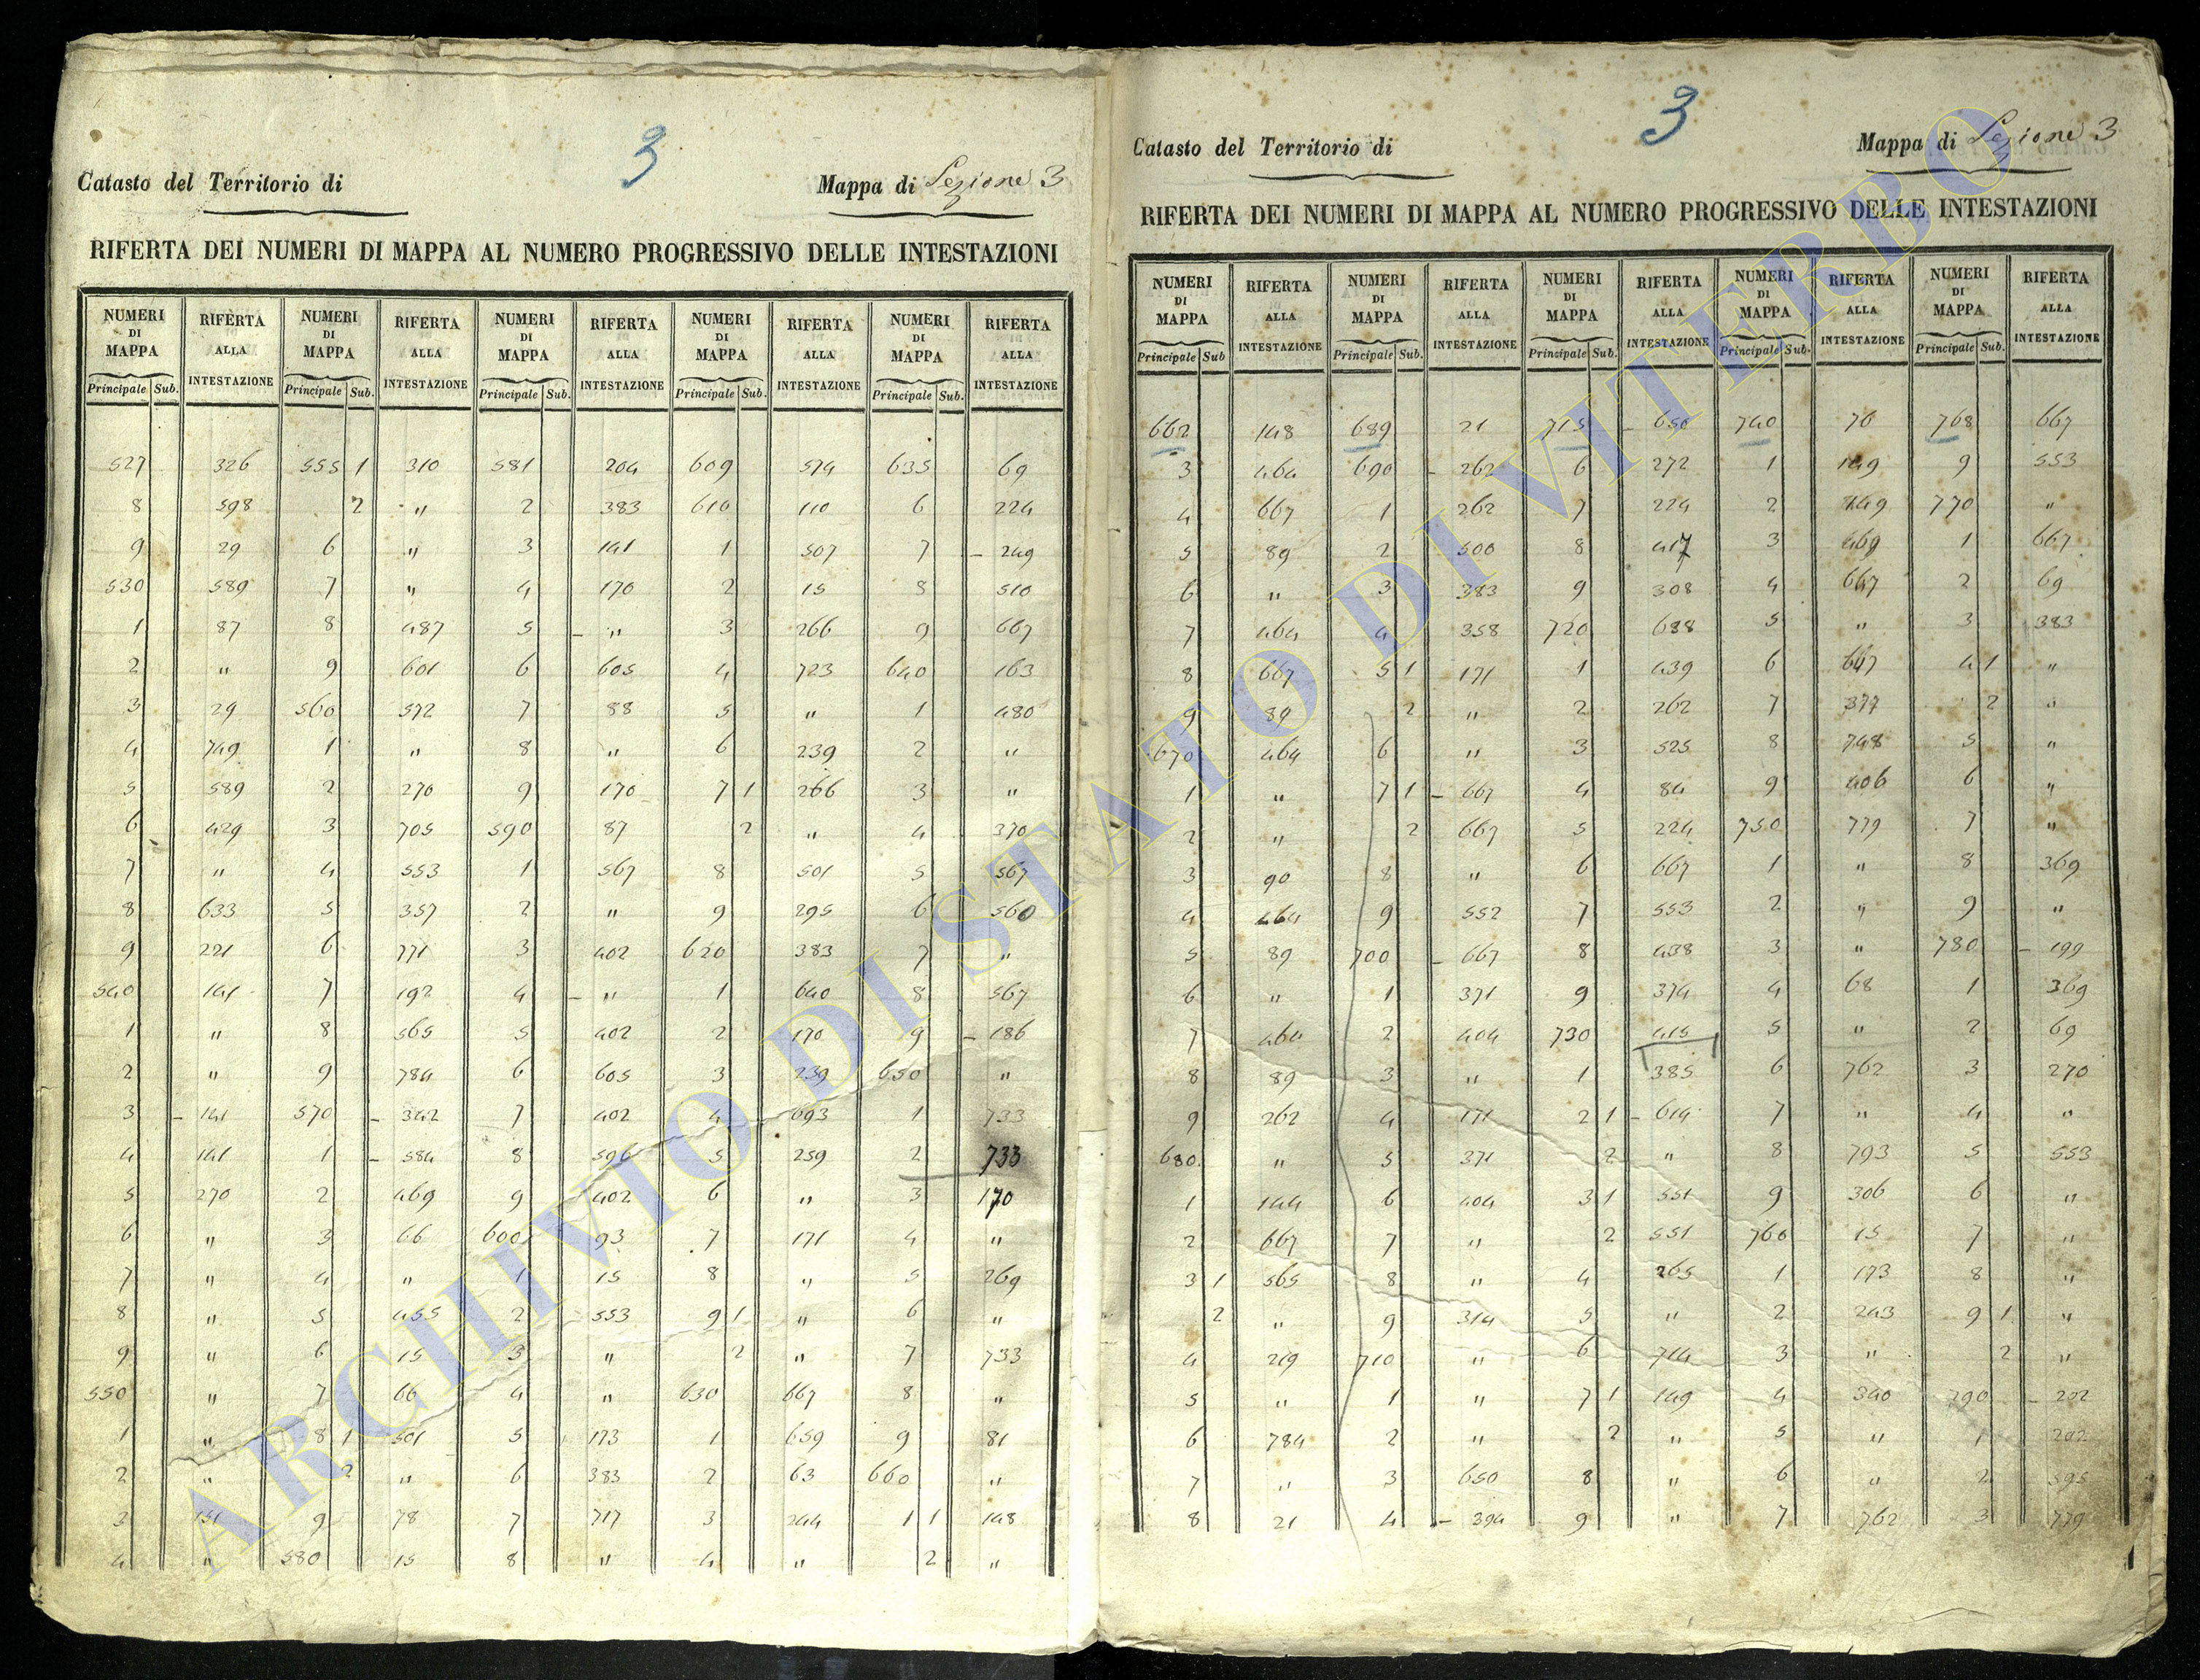 3
Catasto del Territorio di
Mappa di Sezione 3
RIFERTA DEI NUMERI DI MAPPA AL NUMERO PROGRESSIVO DELLE INTESTAZIONI
NUMERI DI MAPPA RIFERTA ALLA INTESTAZIONE NUMERI DI MAPPA RIFERTA ALLA INTESTAZIONE NUMERI DI MAPPA RIFERTA ALLA INTESTAZIONE NUMERI DI MAPPA RIFERTA ALLA INTESTAZIONE NUMERI DI MAPPA RIFERTA ALLA INTESTAZIONE
Principale Sub. Principale Sub. Principale Sub. Principale Sub. Principale Sub.
527 326 555 1 310 581 204 609 574 635 69
8 598 2 " 2 383 610 110 6 224
9 29 6 " 3 141 1 507 7 – 249
530 589 7 " 4 170 2 15 8 510
1 87 8 487 5 – " 3 266 9 667
2 " 9 601 6 605 4 723 640 163
3 29 560 572 7 88 5 " 1 480
4 749 1 " 8 " 6 239 2 "
5 589 2 270 9 170 7 1 266 3 "
6 429 3 705 590 87 2 " 4 370
7 " 4 553 1 567 8 501 5 567
8 633 5 357 2 " 9 295 6 560
9 221 6 771 3 402 620 383 7 "
540 141 7 192 4 – " 1 640 8 567
1 " 8 565 5 402 2 170 9 – 186
2 " 9 784 6 605 3 239 650 "
3 – 141 570 – 342 7 402 4 693 1 733
4 141 1 – 584 8 596 5 259 2 733
5 270 2 469 9 402 6 " 3 170
6 " 3 66 600 93 7 171 4 "
7 " 4 " 1 15 8 " 5 269
8 " 5 455 2 553 9 1 " 6 "
9 " 6 15 3 " 2 " 7 733
550 " 7 66 4 " 630 667 8 "
1 " 8 1 501 5 173 1 659 9 81
2 " 2 " 6 383 2 63 660 "
3 151 9 78 7 717 3 244 1 1 148
4 " 580 15 8 " 4 " 2 "
3
Catasto del Territorio di
Mappa di Sezione 3
RIFERTA DEI NUMERI DI MAPPA AL NUMERO PROGRESSIVO DELLE INTESTAZIONI
NUMERI DI MAPPA RIFERTA ALLA INTESTAZIONE NUMERI DI MAPPA RIFERTA ALLA INTESTAZIONE NUMERI DI MAPPA RIFERTA ALLA INTESTAZIONE NUMERI DI MAPPA RIFERTA ALLA INTESTAZIONE NUMERI DI MAPPA RIFERTA ALLA INTESTAZIONE
Principale Sub Principale Sub. Principale Sub. Principale Sub. Principale Sub.
662 148 689 21 715 – 650 740 76 768 667
3 464 690 – 262 6 272 1 149 9 553
4 667 1 262 7 224 2 149 770 "
5 89 2 500 8 417 3 469 1 667
6 " 3 383 9 308 4 667 2 69
7 464 4 358 720 688 5 " 3 383
8 667 5 1 171 1 439 6 667 4 1 "
9 89 2 " 2 262 7 377 2 "
670 464 6 " 3 525 8 748 5 "
1 " 7 1 – 667 4 84 9 406 6 "
2 " 2 667 5 224 750 779 7 "
3 90 8 " 6 667 1 " 8 369
4 464 9 552 7 553 2 " 9 "
5 89 700 – 667 8 438 3 " 780 – 199
6 " 1 371 9 374 4 68 1 369
7 464 2 404 730 415 5 " 2 69
8 89 3 " 1 385 6 762 3 270
9 262 4 171 2 1 – 614 7 " 4 "
680 " 5 371 2 " 8 793 5 553
1 144 6 404 3 1 551 9 306 6 "
2 667 7 " 2 551 760 15 7 "
3 1 565 8 " 4 265 1 173 8 "
2 " 9 314 5 " 2 243 9 1 "
4 219 710 " 6 714 3 " 2 "
5 " 1 " 7 1 149 4 340 790 – 202
6 784 2 " 2 " 5 " 1 202
7 " 3 650 8 " 6 " 2 595
8 21 4 – 394 9 " 7 762 3 779
ARCHIVIO DI STATO DI VITERBO